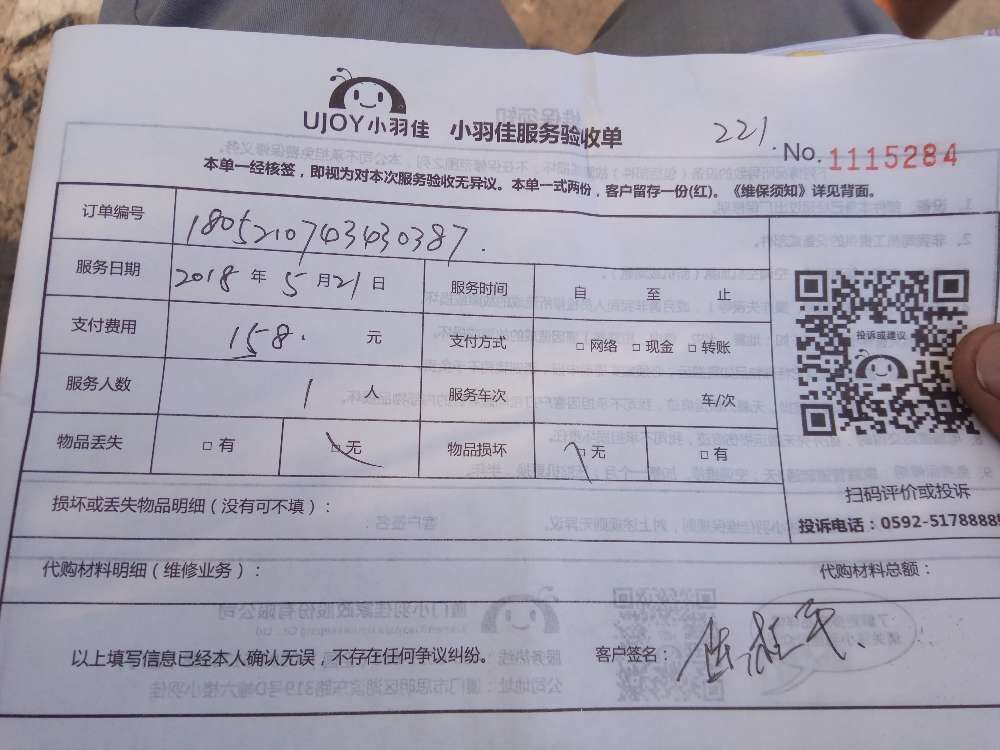 UJOY小羽佳 小羽佳服务验收单
221.
No. 1115284
本单一经核签，即视为对本次服务验收无异议。本单一式两份，客户留存一份(红)。《维保须知》详见背面。
订单编号 180521074343430387.
服务日期 2018 年 5 月 21 日 服务时间 自 至 止
支付费用 158. 元 支付方式 □ 网络 □ 现金 □ 转账
投诉或建议
服务人数 1 人 服务车次 车/次
物品丢失 □ 有 □ 无 物品损坏 □ 无 □ 有
损坏或丢失物品明细（没有可不填）：
扫码评价或投诉
投诉电话：0592-5178888
代购材料明细（维修业务）： 代购材料总额：
以上填写信息已经本人确认无误，不存在任何争议纠纷。 客户签名：